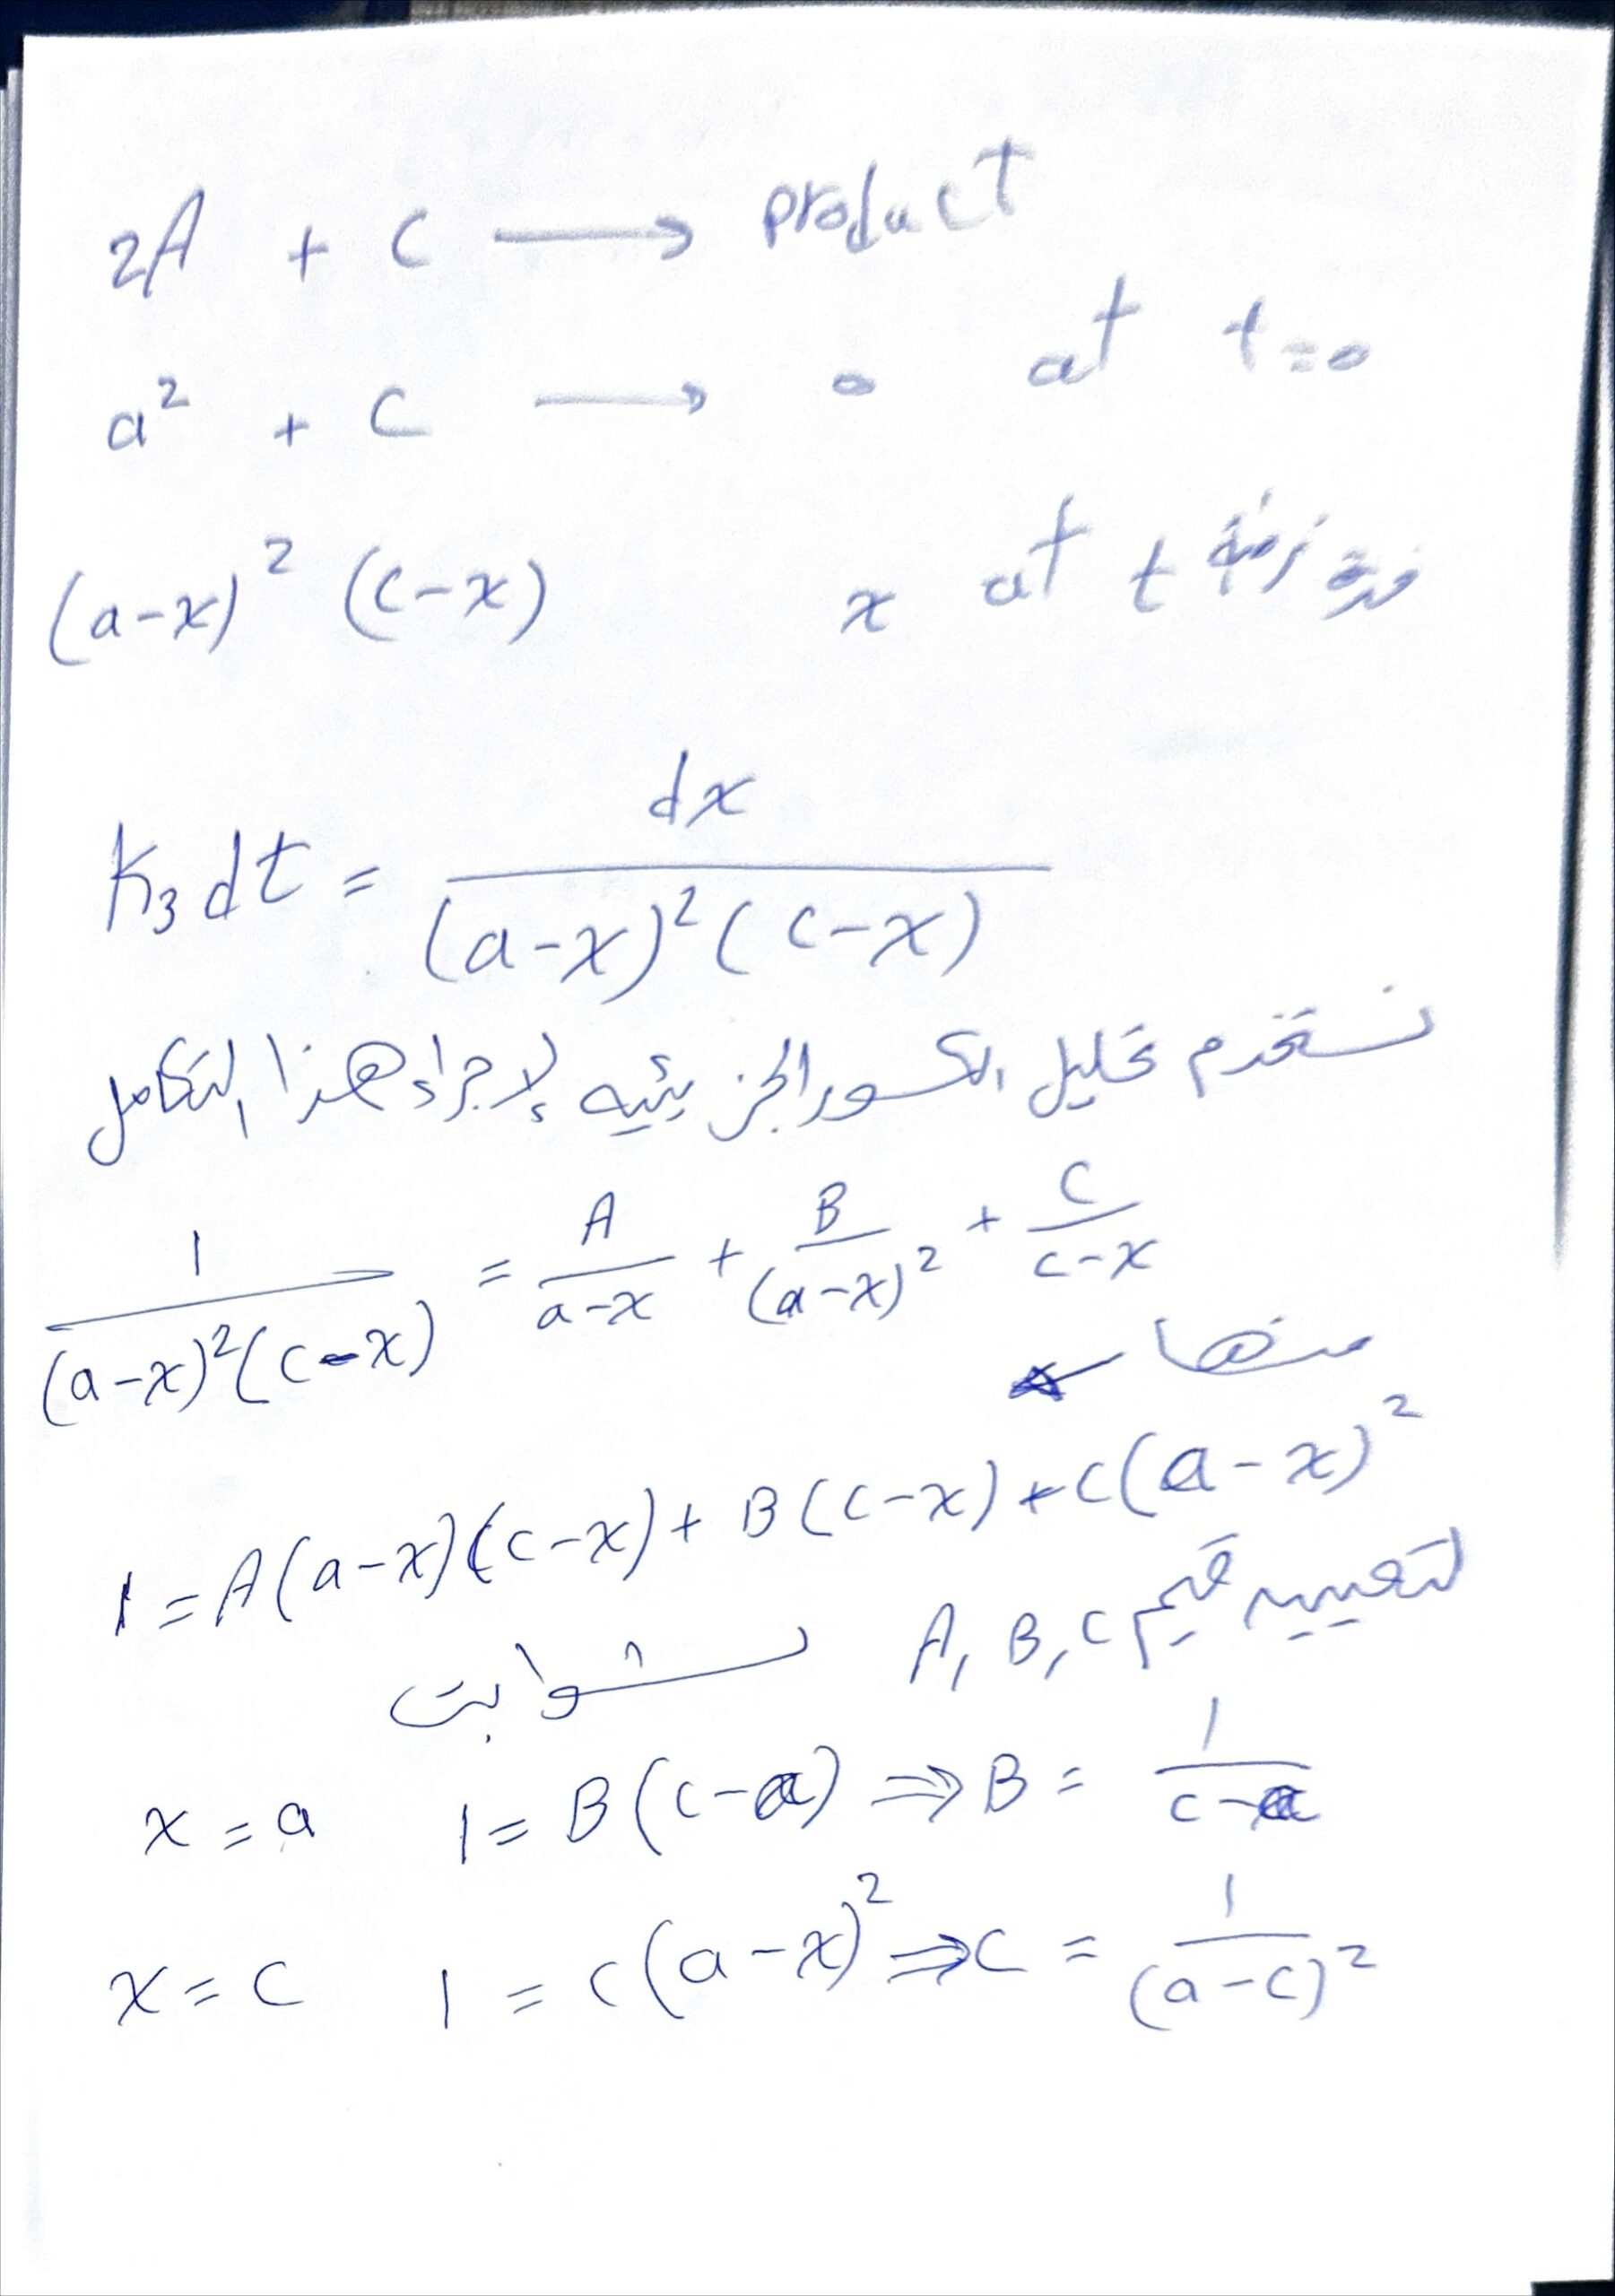 2A + C ⟶ product
a² + C ⟶ 0 at t=0
(a-x)² (c-x) x at t فترة زمنية
K₃dt = dx / (a-x)²(c-x)
نستخدم تحليل الكسور الجزيئيه لإجراء هذا التكامل
1 / (a-x)²(c-x) = A / a-x + B / (a-x)² + C / c-x
منها
1 = A(a-x)(c-x) + B(c-x) + C(a-x)²
لتعيين قيم A, B, C
ثوابت
x = a 1 = B(c-a) ⇒ B = 1 / c-a
x = c 1 = c(a-x)² ⇒ C = 1 / (a-c)²